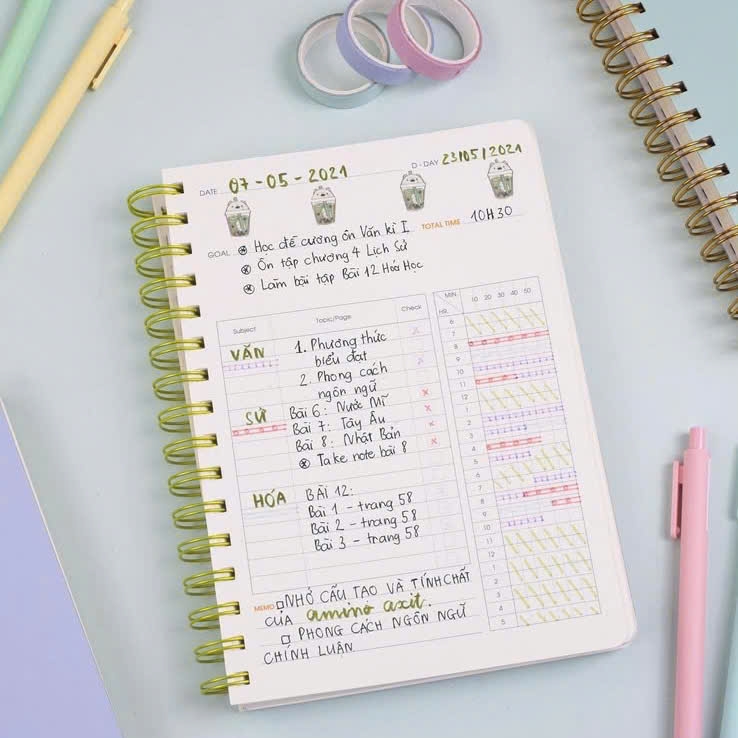 DATE 07-05-2021 D-DAY 23/05/2021
TOTAL TIME 10H30
GOAL ⊗ Học đề cương ôn Văn kì I
⊗ Ôn tập chương 4 Lịch Sử
⊗ Làm bài tập Bài 12 Hóa Học
Subject Topic/Page Check
VĂN 1. Phương thức
biểu đạt
2. Phong cách
ngôn ngữ
SỬ Bài 6: Nước Mĩ
Bài 7: Tây Âu
Bài 8: Nhật Bản
⊗ Take note bài 8
HÓA BÀI 12:
Bài 1 - trang 58
Bài 2 - trang 58
Bài 3 - trang 58
MIN. 10 20 30 40 50
HR.
6
7
8
9
10
11
12
1
2
3
4
5
6
7
8
9
10
11
12
1
2
3
4
5
MEMO □ NHỚ CẤU TẠO VÀ TÍNH CHẤT
CỦA amino axit.
□ PHONG CÁCH NGÔN NGỮ
CHÍNH LUẬN